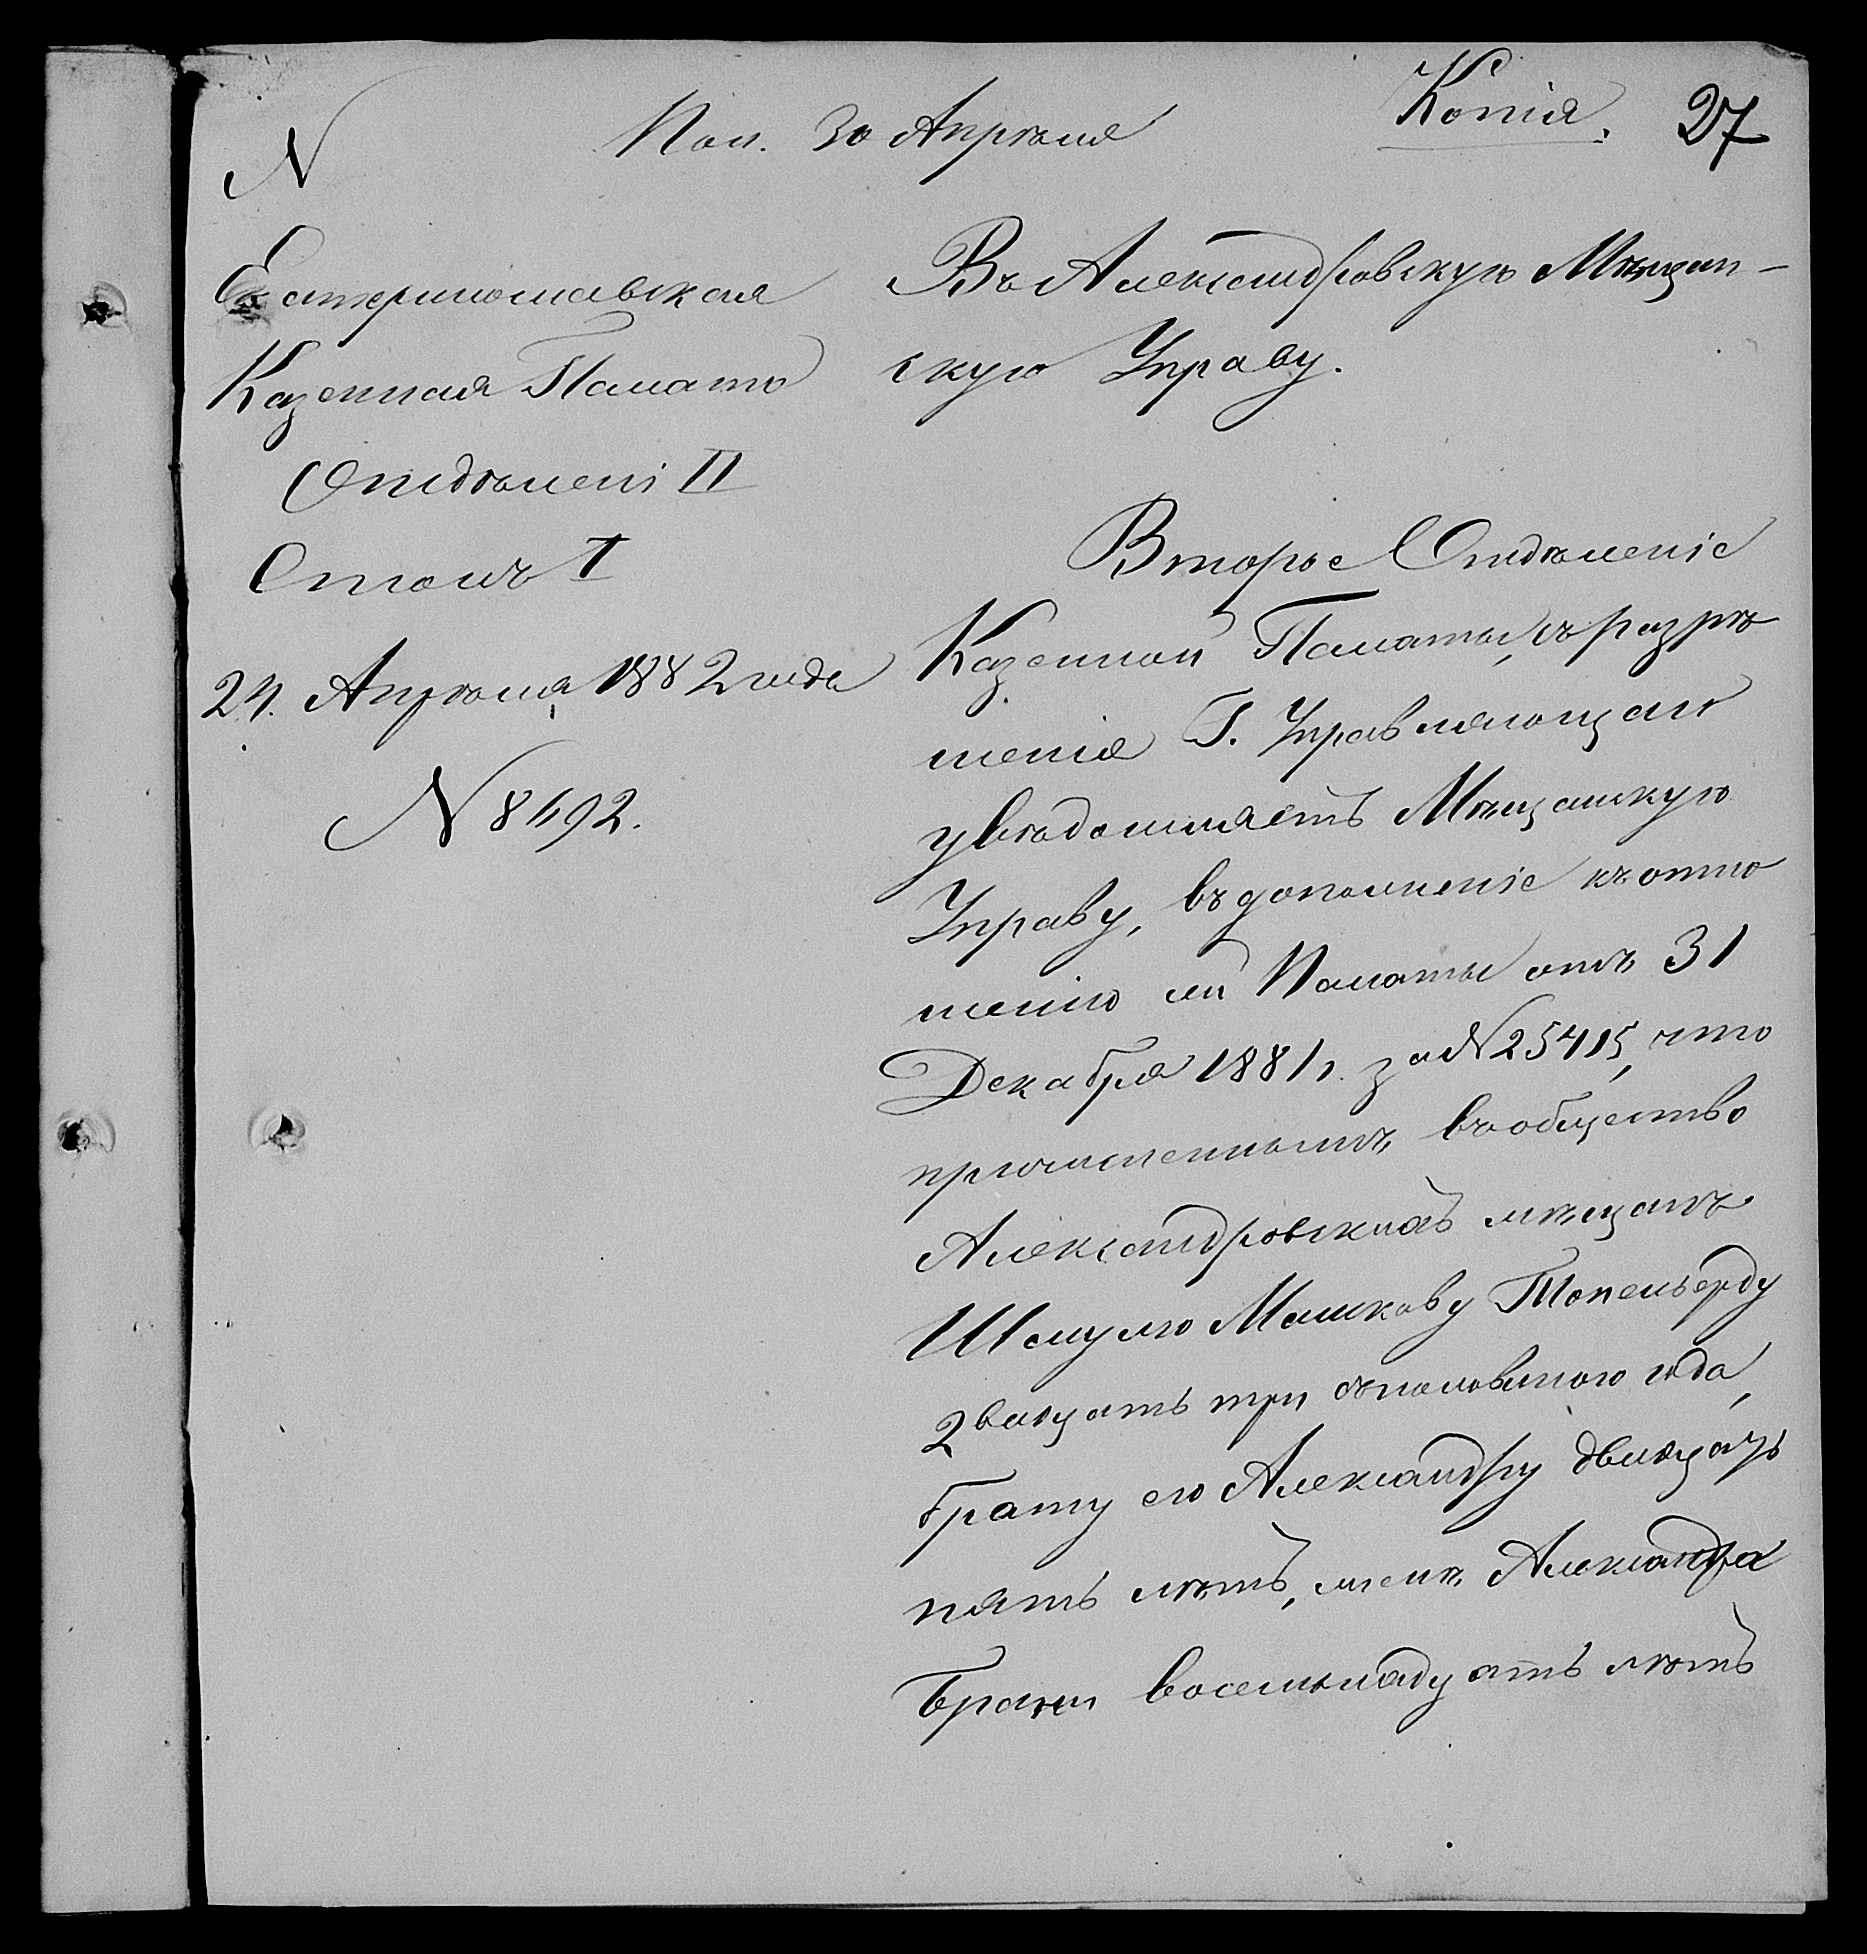 Копія. 27
N
Пол. 30 Апрѣля
Екатеринославская
Казенная Палата
Отдѣленіе II
Столъ I
24. Апрѣля 1882 года
N 8492.
Въ Александровскую Мѣщан-
скую Управу.
Второе Отдѣленіе
Казенной Палаты, съ разрѣ
шенія Г. Управляющаго
увѣдомляетъ Мѣщанскую
Управу, въ дополненіе къ отно
шенію сей Палаты отъ 31
Декабря 1881 г. за N 25415, что
причисленнымъ въ общество
Александровскихъ мѣщанъ
Шмулю Машкову Топельберду
двадцать три съ половиною года,
брату его Александру двадцать
пять лѣтъ, женѣ Александра
Брахи восемьнадцать лѣтъ